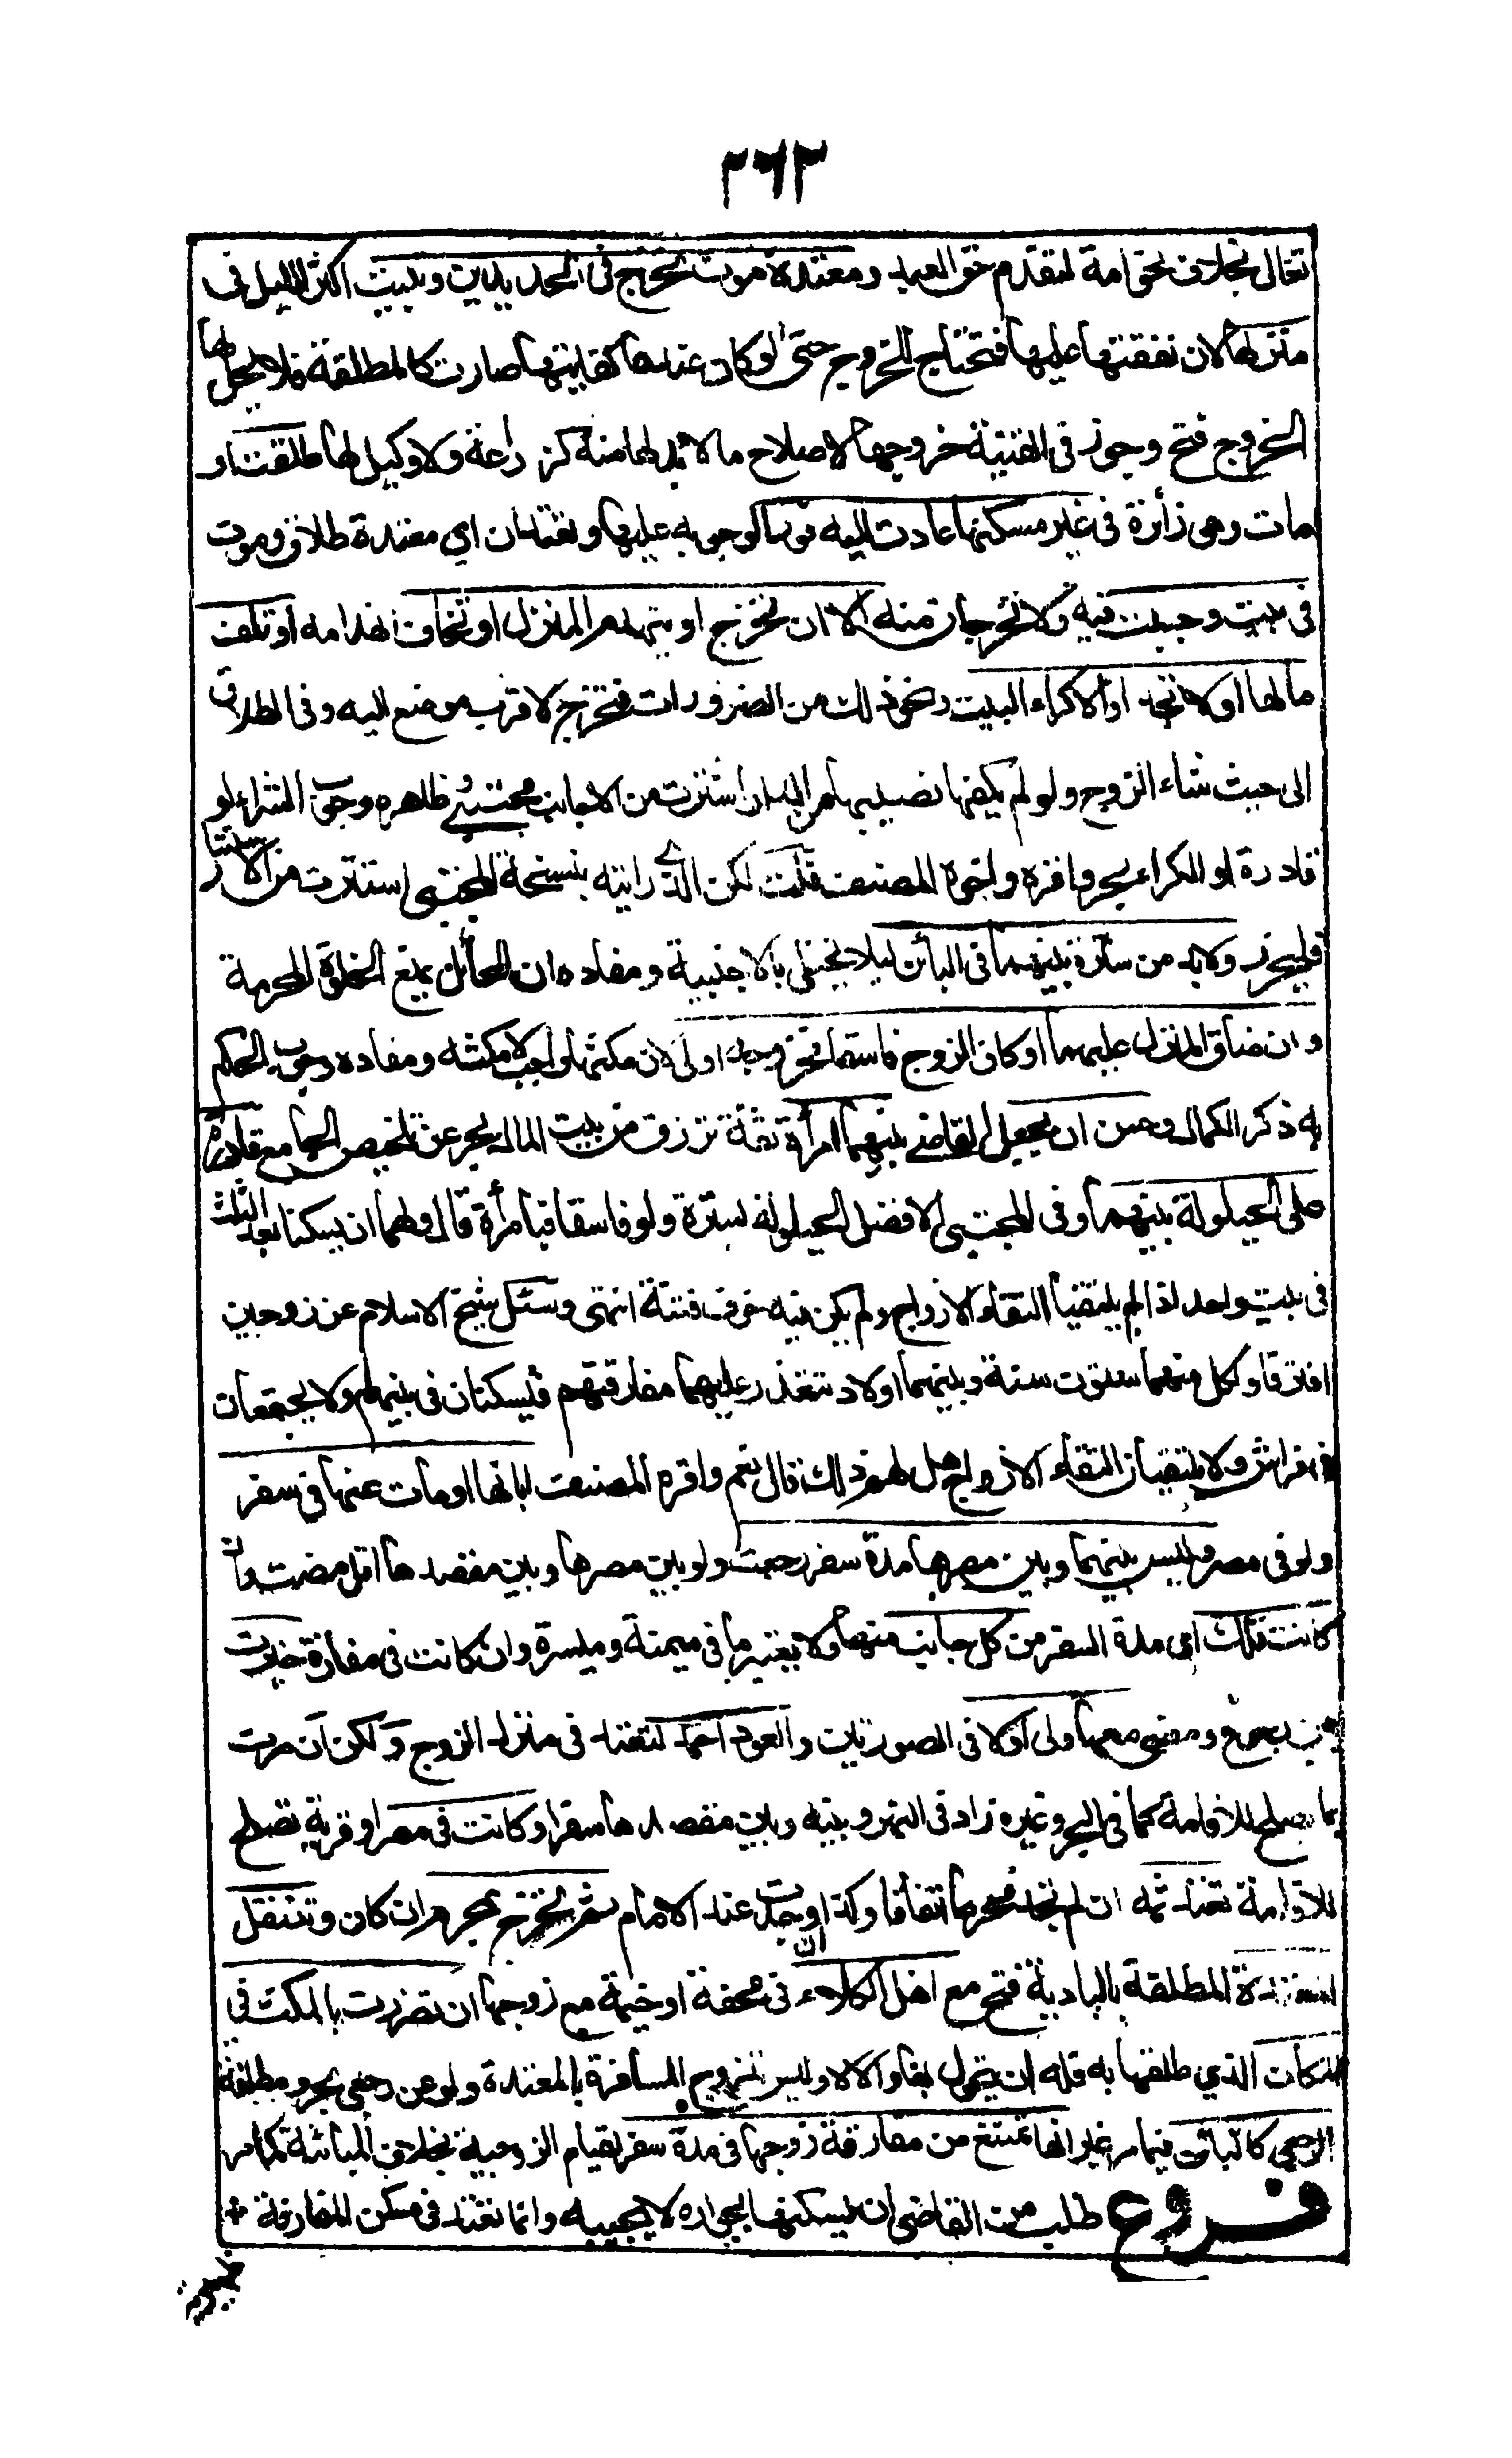 ٢٦٣
تعالى بخلاف نحو امة لتقدم حق العبد ومعتدة موت تخرج في الجديدين وتبيت اكثر الليل في
منزلها لان نفقتها عليها فتحتاج للخروج حتى لو كان عندها كفايتها صارت كالمطلقة فلا يحل لها
الخروج فتح وجوز في القنية خروجها لاصلاح ما لا بد لها منه كزراعة ولا وكيل لها طلقت او
مات وهي زائرة في غير مسكنها عادت اليه فورا لوجوبه عليها وتعتدان اي معتدة طلاق وموت
في بيت وجبت فيه ولا تخرجان منه الا ان تخرج او يتهدم المنزل او تخاف انهدامه او تلف
مالها او لا تجد اوالا كراء البيت ونحو ذلك من الضرورات فتخرج لاقرب موضع اليه وفي الطلاق
الى حيث شاء الزوج ولو لم يكفها نصيبها من الدار اشترت من الاجانب مجتبى وظاهره وجوب الشراء لو
قادرة او الكراء بحر واقره اخوه المصنف قلت لكن الذي رايته بنسختي المجتبى استترت من الاستتار
فليحرر ولابد من سترة بينهما في البائن ليلا يختلي بالاجنبية ومفاده ان الحائل يمنع الخلوة المحرمة
وان ضاق المنزل عليهما او كان الزوج فاسقا فخروجه اولى لان مكثها واجب لا مكثه ومفاده وجوب الحكم
به ذكره الكمال وحسن ان يجعل القاضي بينهما امرأة ثقة ترزق من بيت المال بحر عن تلخيص الجامع قادرة
على الحيلولة بينهما وفي المجتبى الافضل الحيلولة بسترة ولو فاسقا فبامرأة قال ولهما ان يسكنا بعد الثلث
في بيت واحد اذا لم يلتقيا التقاء الازواج ولم يكن فيه خوف فتنة انتهى وسئل شيخ الاسلام عن زوجين
افترقا ولكل منهما ستون سنة وبينهما اولاد تتعذر عليهما مفارقتهم فيسكنان في بيتهم ولا يجتمعان
في فراش ولا يلتقيان التقاء الازواج هل لهم ذلك قال نعم واقره المصنف ابانها او مات عنها في سفر
ولو في مصر وليس بينهما وبين مصرها مدة سفر رجعت ولو بين مصرها وبين مقصدها اقل مضت وان
كانت تلك اي مدة السفر من كل جانب منهما ولا يعتبر ما في ميمنة وميسرة وان كانت في مفازة خيرت
بين رجوع ومضي معها ولي اولا في الصورتين والعود احمد لتعتد في منزل الزوج ولكن ان مرت
بما يصلح للاقامة كما في البحر وغيره زاد في النهر وبينه وبين مقصدها سفر او كانت في مصر او قرية تصلح
للاقامة تعتد ثمه ان لم تجد محرما اتفاقا وكذا ان وجدت عند الامام ثم تخرج بمحرم ان كان وتنتقل
المعتدة المطلقة بالبادية فتح مع اهل الكلاء في محفة او خيمة مع زوجها ان تضررت بالمكث في
المكان الذي طلقها به فله ان يتحول بها والا لا وليس للزوج المسافرة بالمعتدة ولو عن رجعي بحر ومطلقة
الرجعي كالبائن فيما مر غير انها تمتنع من مفارقة زوجها في مدة سفر لقيام الزوجية بخلاف المبانة كما مر
فروع طلب من القاضي ان يسكنها بجواره لا يجيبه وانما تعتد في مسكن المفارقة